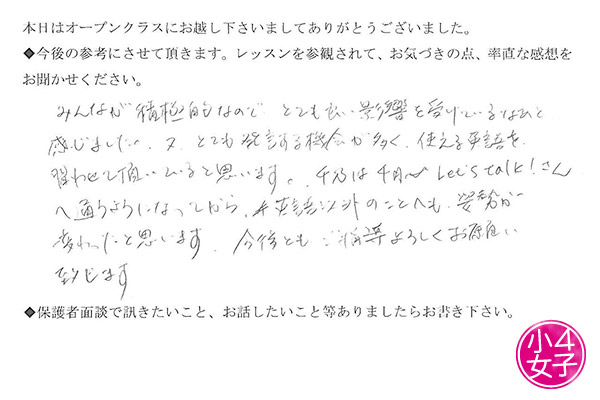 本日はオープンクラスにお越し下さいましてありがとうございました。
◆今後の参考にさせて頂きます。レッスンを参観されて、お気づきの点、率直な感想を
お聞かせください。
みんなが積極的なので とても良い影響を受けているなぁと
感じました。又、とても発言する機会が多く、使える英語を
習わせて頂いていると思います。 は4月からLet's talk!さん
へ通うようになってから、英語以外のことへも、姿勢が
変わったと思います。今後とも ご指導よろしくお願い
致します
◆保護者面談で訊きたいこと、お話したいこと等ありましたらお書き下さい。
小4
女子